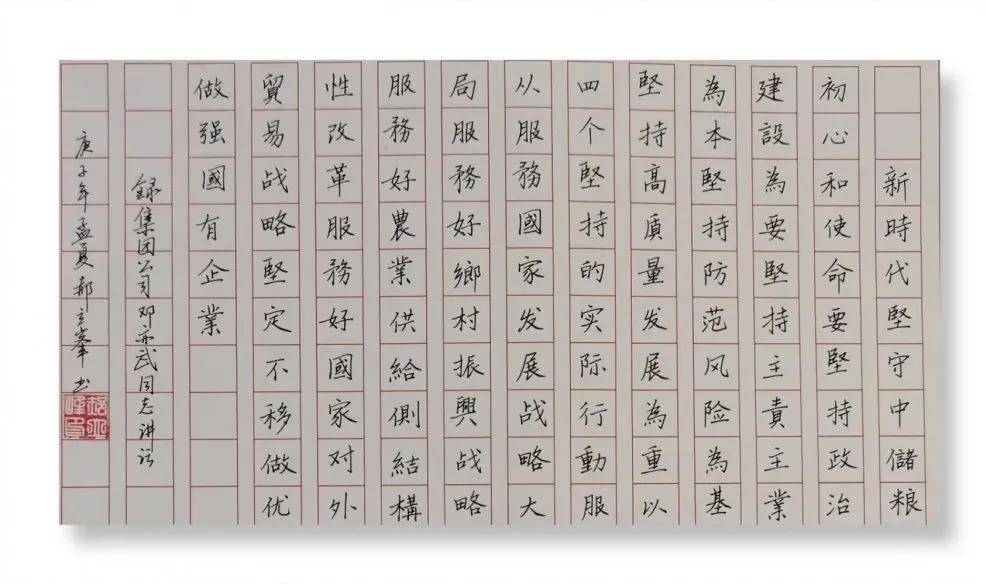 新時代堅守中儲粮
初心和使命要堅持政治
建設為要堅持主責主業
為本堅持防范风险為基
堅持高质量发展為重以
四个堅持的实际行動服
从服務國家发展战略大
局服務好鄉村振興战略
服務好農業供給側結構
性改革服務好國家对外
貿易战略堅定不移做优
做强國有企業
録集团公司邓亦武同志讲话
庚子年孟夏郝立峯书